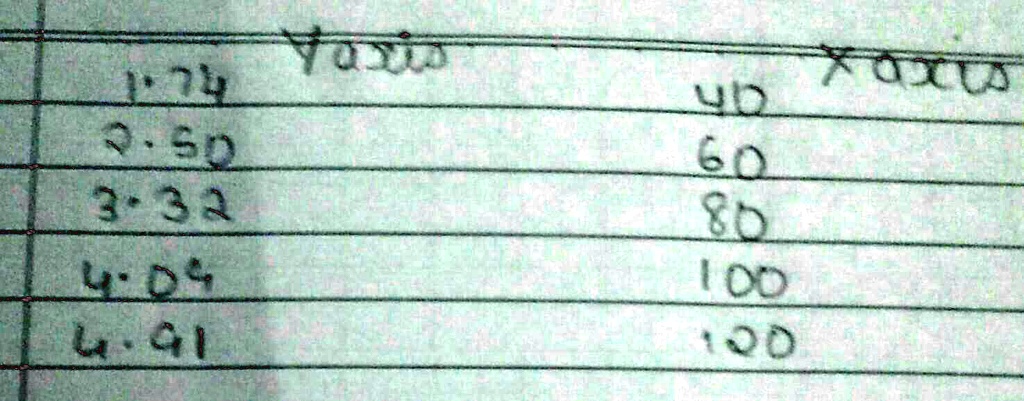 Y axis X axis
1.74 40
2.50 60
3.32 80
4.09 100
4.91 120